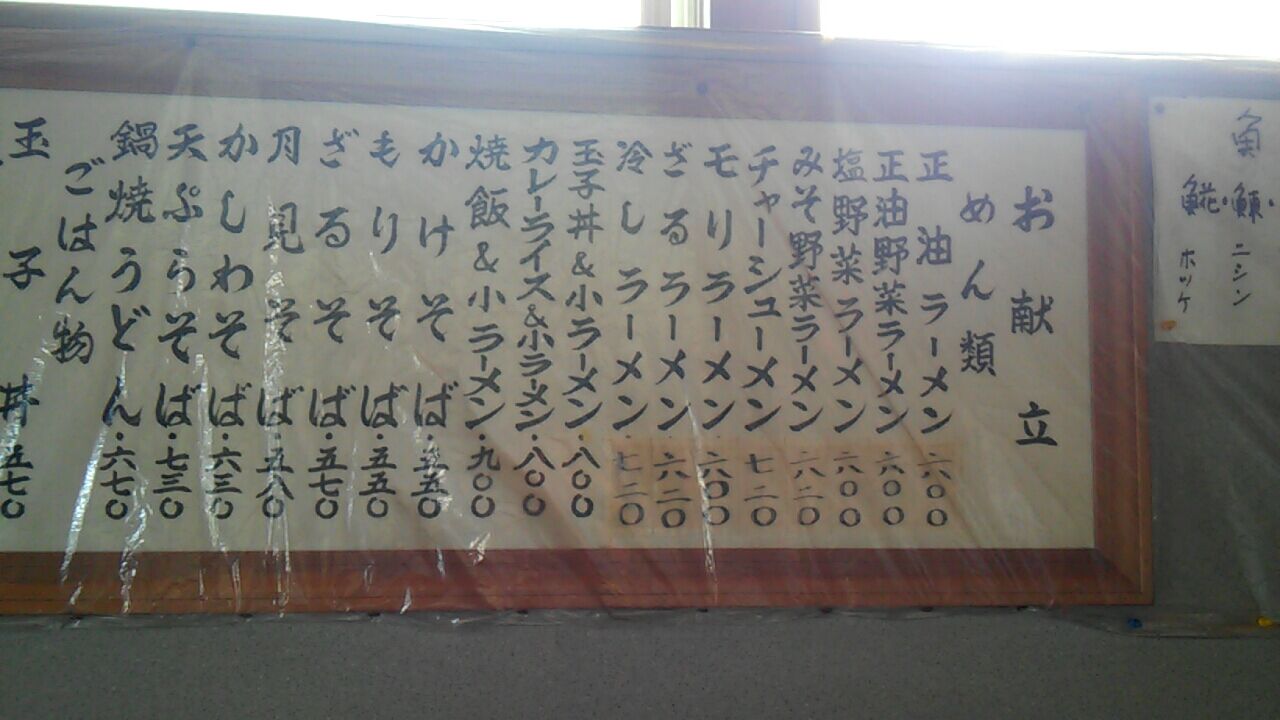 魚
鰊・ニシン
鯱・ホッケ
お献立
めん類
正油ラーメン 六〇〇
正油野菜ラーメン 六〇〇
塩野菜ラーメン 六〇〇
みそ野菜ラーメン 六二〇
チャーシューメン 七二〇
モリラーメン 六〇〇
ざるラーメン 六二〇
冷しラーメン 七二〇
玉子丼&小ラーメン・八〇〇
カレーライス&小ラーメン・八〇〇
焼飯&小ラーメン・九〇〇
かけそば・五五〇
もりそば・五五〇
ざるそば・五七〇
月見そば・五八〇
かしわそば・六三〇
天ぷらそば・七三〇
鍋焼うどん・六七〇
ごはん物
玉子丼 五七〇